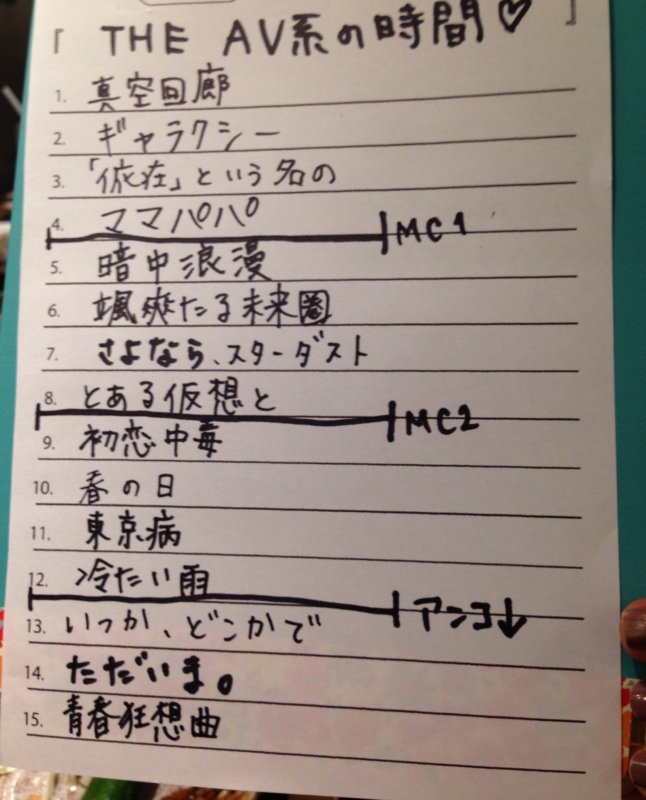 『 THE AV系の時間♡ 』
1. 真空回廊
2. ギャラクシー
3. 「依在」という名の
4. ママパパ
MC1
5. 暗中浪漫
6. 颯爽たる未来圏
7. さよなら、スターダスト
8. とある仮想と
MC2
9. 初恋中毒
10. 春の日
11. 東京病
12. 冷たい雨
アンコ↓
13. いつか、どこかで
14. ただいま。
15. 青春狂想曲